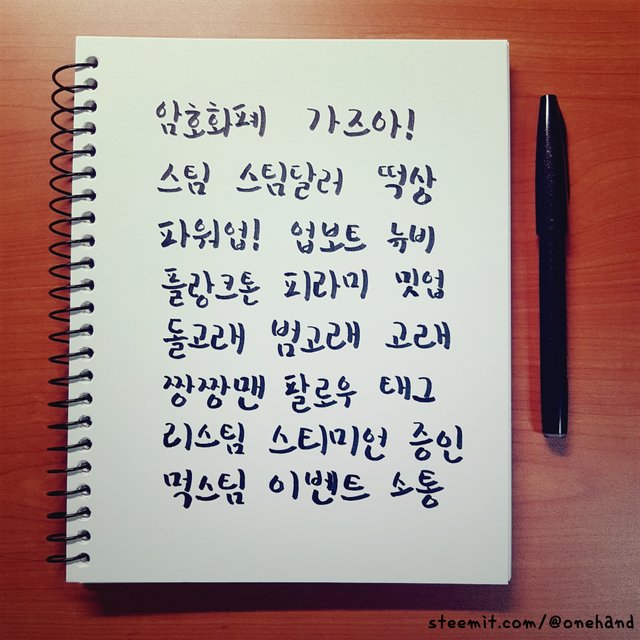 암호화폐 가즈아!
스팀 스팀달러 떡상
파워업! 업보트 뉴비
플랑크톤 피라미 밋업
돌고래 범고래 고래
짱짱맨 팔로우 태그
리스팀 스티미언 증인
먹스팀 이벤트 소통
steemit.com/@onehand